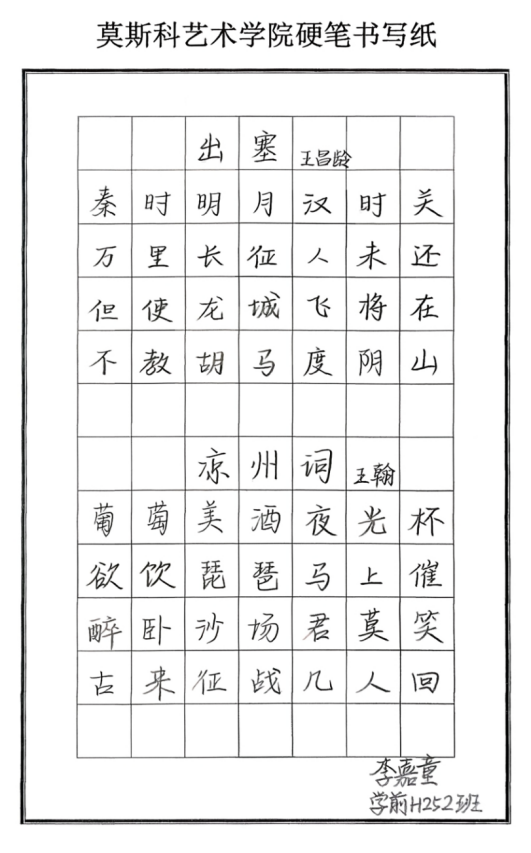 莫斯科艺术学院硬笔书写纸
出塞 王昌龄
秦时明月汉时关
万里长征人未还
但使龙城飞将在
不教胡马度阴山
凉州词 王翰
葡萄美酒夜光杯
欲饮琵琶马上催
醉卧沙场君莫笑
古来征战几人回
李嘉童
学前H252班